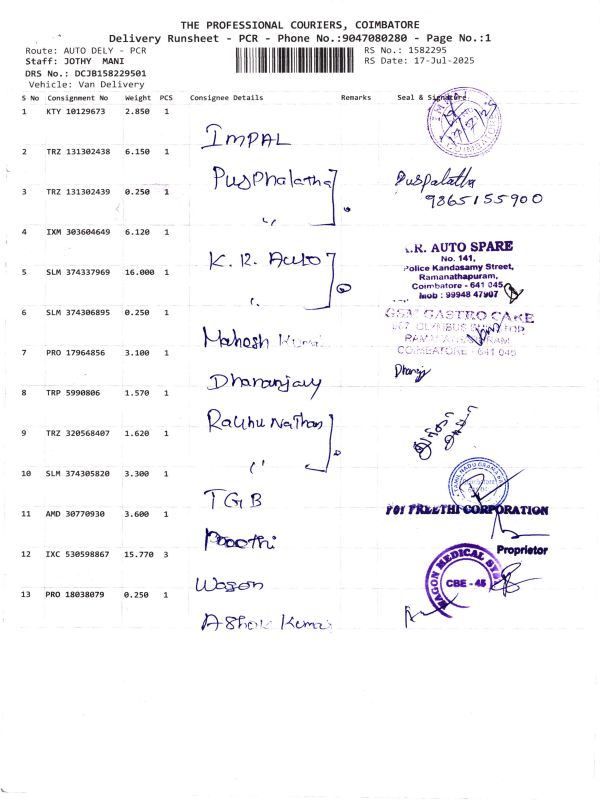 THE PROFESSIONAL COURIERS, COIMBATORE
Delivery Runsheet - PCR - Phone No.:9047080280 - Page No.:1
Route: AUTO DELY - PCR
RS No.: 1582295
Staff: JOTHY MANI
RS Date: 17-Jul-2025
DRS No.: DCJB158229501
Vehicle: Van Delivery
S No Consignment No Weight PCS Consignee Details Remarks Seal & Signature
1 KTY 10129673 2.850 1
IMPAL
17/7/25
COIMBATORE
2 TRZ 131302438 6.150 1
Pusphalatha
Puspalatha
9865155900
3 TRZ 131302439 0.250 1
4 IXM 303604649 6.120 1
K.R. Auto
.R. AUTO SPARE
No. 141,
Police Kandasamy Street,
Ramanathapuram,
Coimbatore - 641 045
Mob : 99948 47907
5 SLM 374337969 16.000 1
6 SLM 374306895 0.250 1
Mahesh Kumar
GSM GASTRO CARE
COIMBATORE - 641 045
7 PRO 17964856 3.100 1
Dhananjay
Dhananj
8 TRP 5990806 1.570 1
Raghu Nathan
9 TRZ 320568407 1.620 1
10 SLM 374305820 3.300 1
TGB
TAMIL NADU GRAMA BANK
11 AMD 30770930 3.600 1
Preethi
For PREETHI CORPORATION
Proprietor
12 IXC 530598867 15.770 3
Wagon
WAGON MEDICAL SYS
CBE - 45
13 PRO 18038079 0.250 1
Ashok Kumar